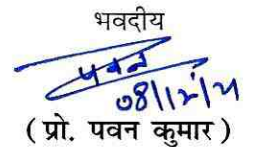 भवदीय
पवन
08/12/21
( प्रो. पवन कुमार )